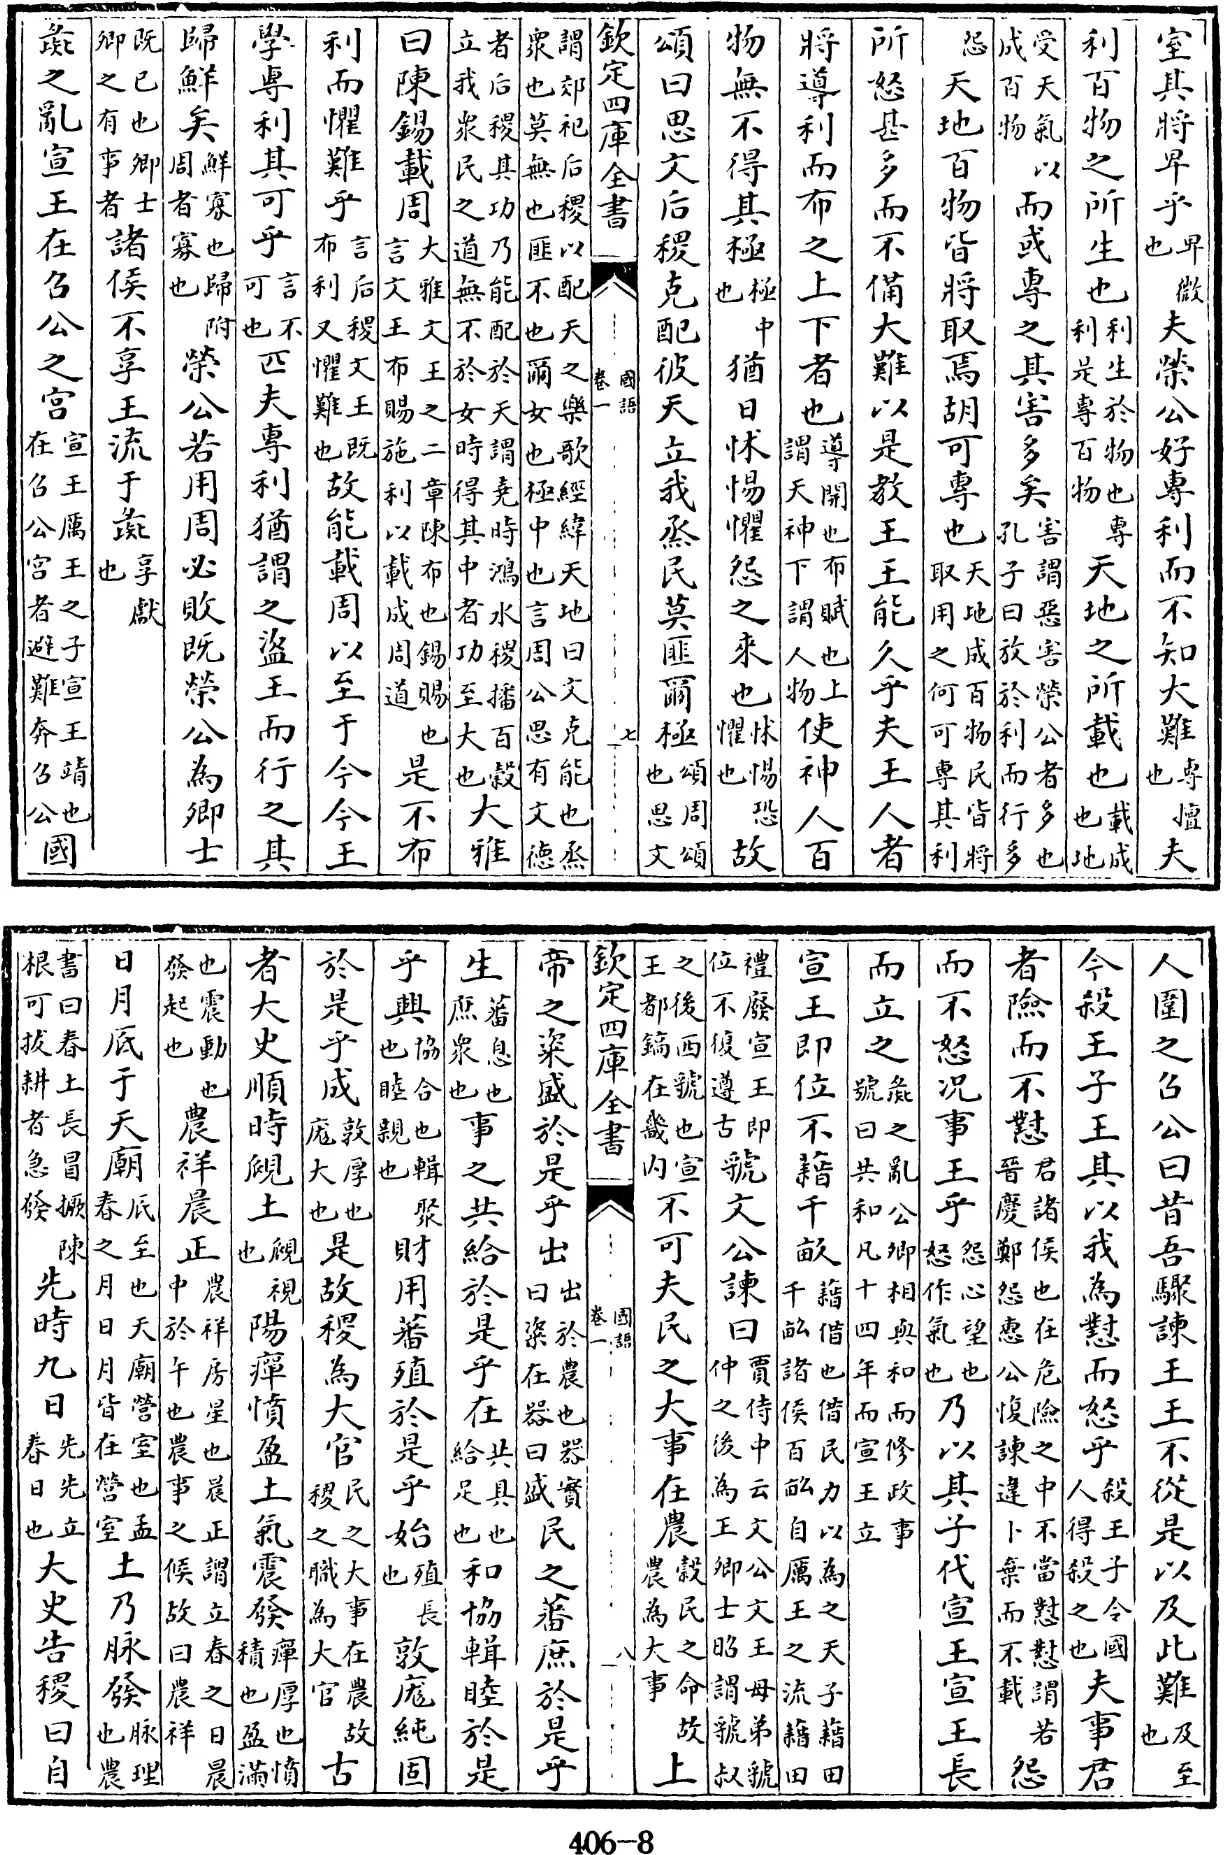 室其將卑乎卑微也夫榮公好專利而不知大難專擅也夫
利百物之所生也利生於物也專利是專百物天地之所載也載成也地
受天氣以成百物而或專之其害多矣害謂惡害榮公者多也孔子曰放於利而行多
怨天地百物皆將取焉胡可專也天地成百物民皆將取用之何可專其利
所怒甚多而不備大難以是教王王能久乎夫王人者
將導利而布之上下者也導開也布賦也上謂天神下謂人物使神人百
物無不得其極極中也猶日怵惕懼怨之來也怵惕恐懼也故
頌曰思文后稷克配彼天立我烝民莫匪爾極頌周頌也思文
欽定四庫全書 國語 卷一 七
謂郊祀后稷以配天之樂歌經緯天地曰文克能也烝衆也莫無也匪不也爾女也極中也言周公思有文德
者后稷其功乃能配於天謂堯時鴻水稷播百穀立我衆民之道無不於女時得其中者功至大也大雅
曰陳錫載周大雅文王之二章陳布也錫賜也言文王布賜施利以載成周道是不布
利而懼難乎言后稷文王既布利又懼難也故能載周以至于今今王
學專利其可乎言不可也匹夫專利猶謂之盜王而行之其
歸鮮矣鮮寡也歸附周者寡也榮公若用周必敗既榮公為卿士
既已也卿士卿之有事者諸侯不享王流于彘享獻也
彘之亂宣王在召公之宮宣王厲王之子宣王靖也在召公宮者避難奔召公國
人圍之召公曰昔吾驟諫王王不從是以及此難及至也
今殺王子王其以我為懟而怒乎殺王子令國人得殺之也夫事君
者險而不懟君諸侯也在危險之中不當懟懟謂若晉慶鄭怨惠公愎諫違卜棄而不載怨
而不怒况事王乎怨心望也怒作氣也乃以其子代宣王宣王長
而立之彘之亂公卿相與和而修政事號曰共和凡十四年而宣王立
宣王即位不藉千畝藉借也借民力以為之天子藉田千畝諸侯百畝自厲王之流藉田
禮廢宣王即位不復遵古虢文公諫曰賈侍中云文公文王母弟虢仲之後為王卿士昭謂虢叔
之後西虢也宣王都鎬在畿內不可夫民之大事在農穀民之命故農為大事上
欽定四庫全書 國語 卷一 八
帝之粢盛於是乎出出於農也器實曰粢在器曰盛民之蕃庶於是乎
生蕃息也庶衆也事之共給於是乎在共具也給足也和協輯睦於是
乎興協合也輯聚也睦親也財用蕃殖於是乎始殖長也敦庬純固
於是乎成敦厚也庬大也是故稷為大官民之大事在農故稷之職為大官古
者大史順時覛土覛視也陽癉憤盈土氣震發癉厚也憤積也盈滿
也震動也發起也農祥晨正農祥房星也晨正謂立春之日晨中於午也農事之候故曰農祥
日月底于天廟底至也天廟營室也孟春之月日月皆在營室土乃脉發脉理也農
書曰春土長冒橛陳根可拔耕者急發先時九日先先立春日也大史告稷曰自
406-8